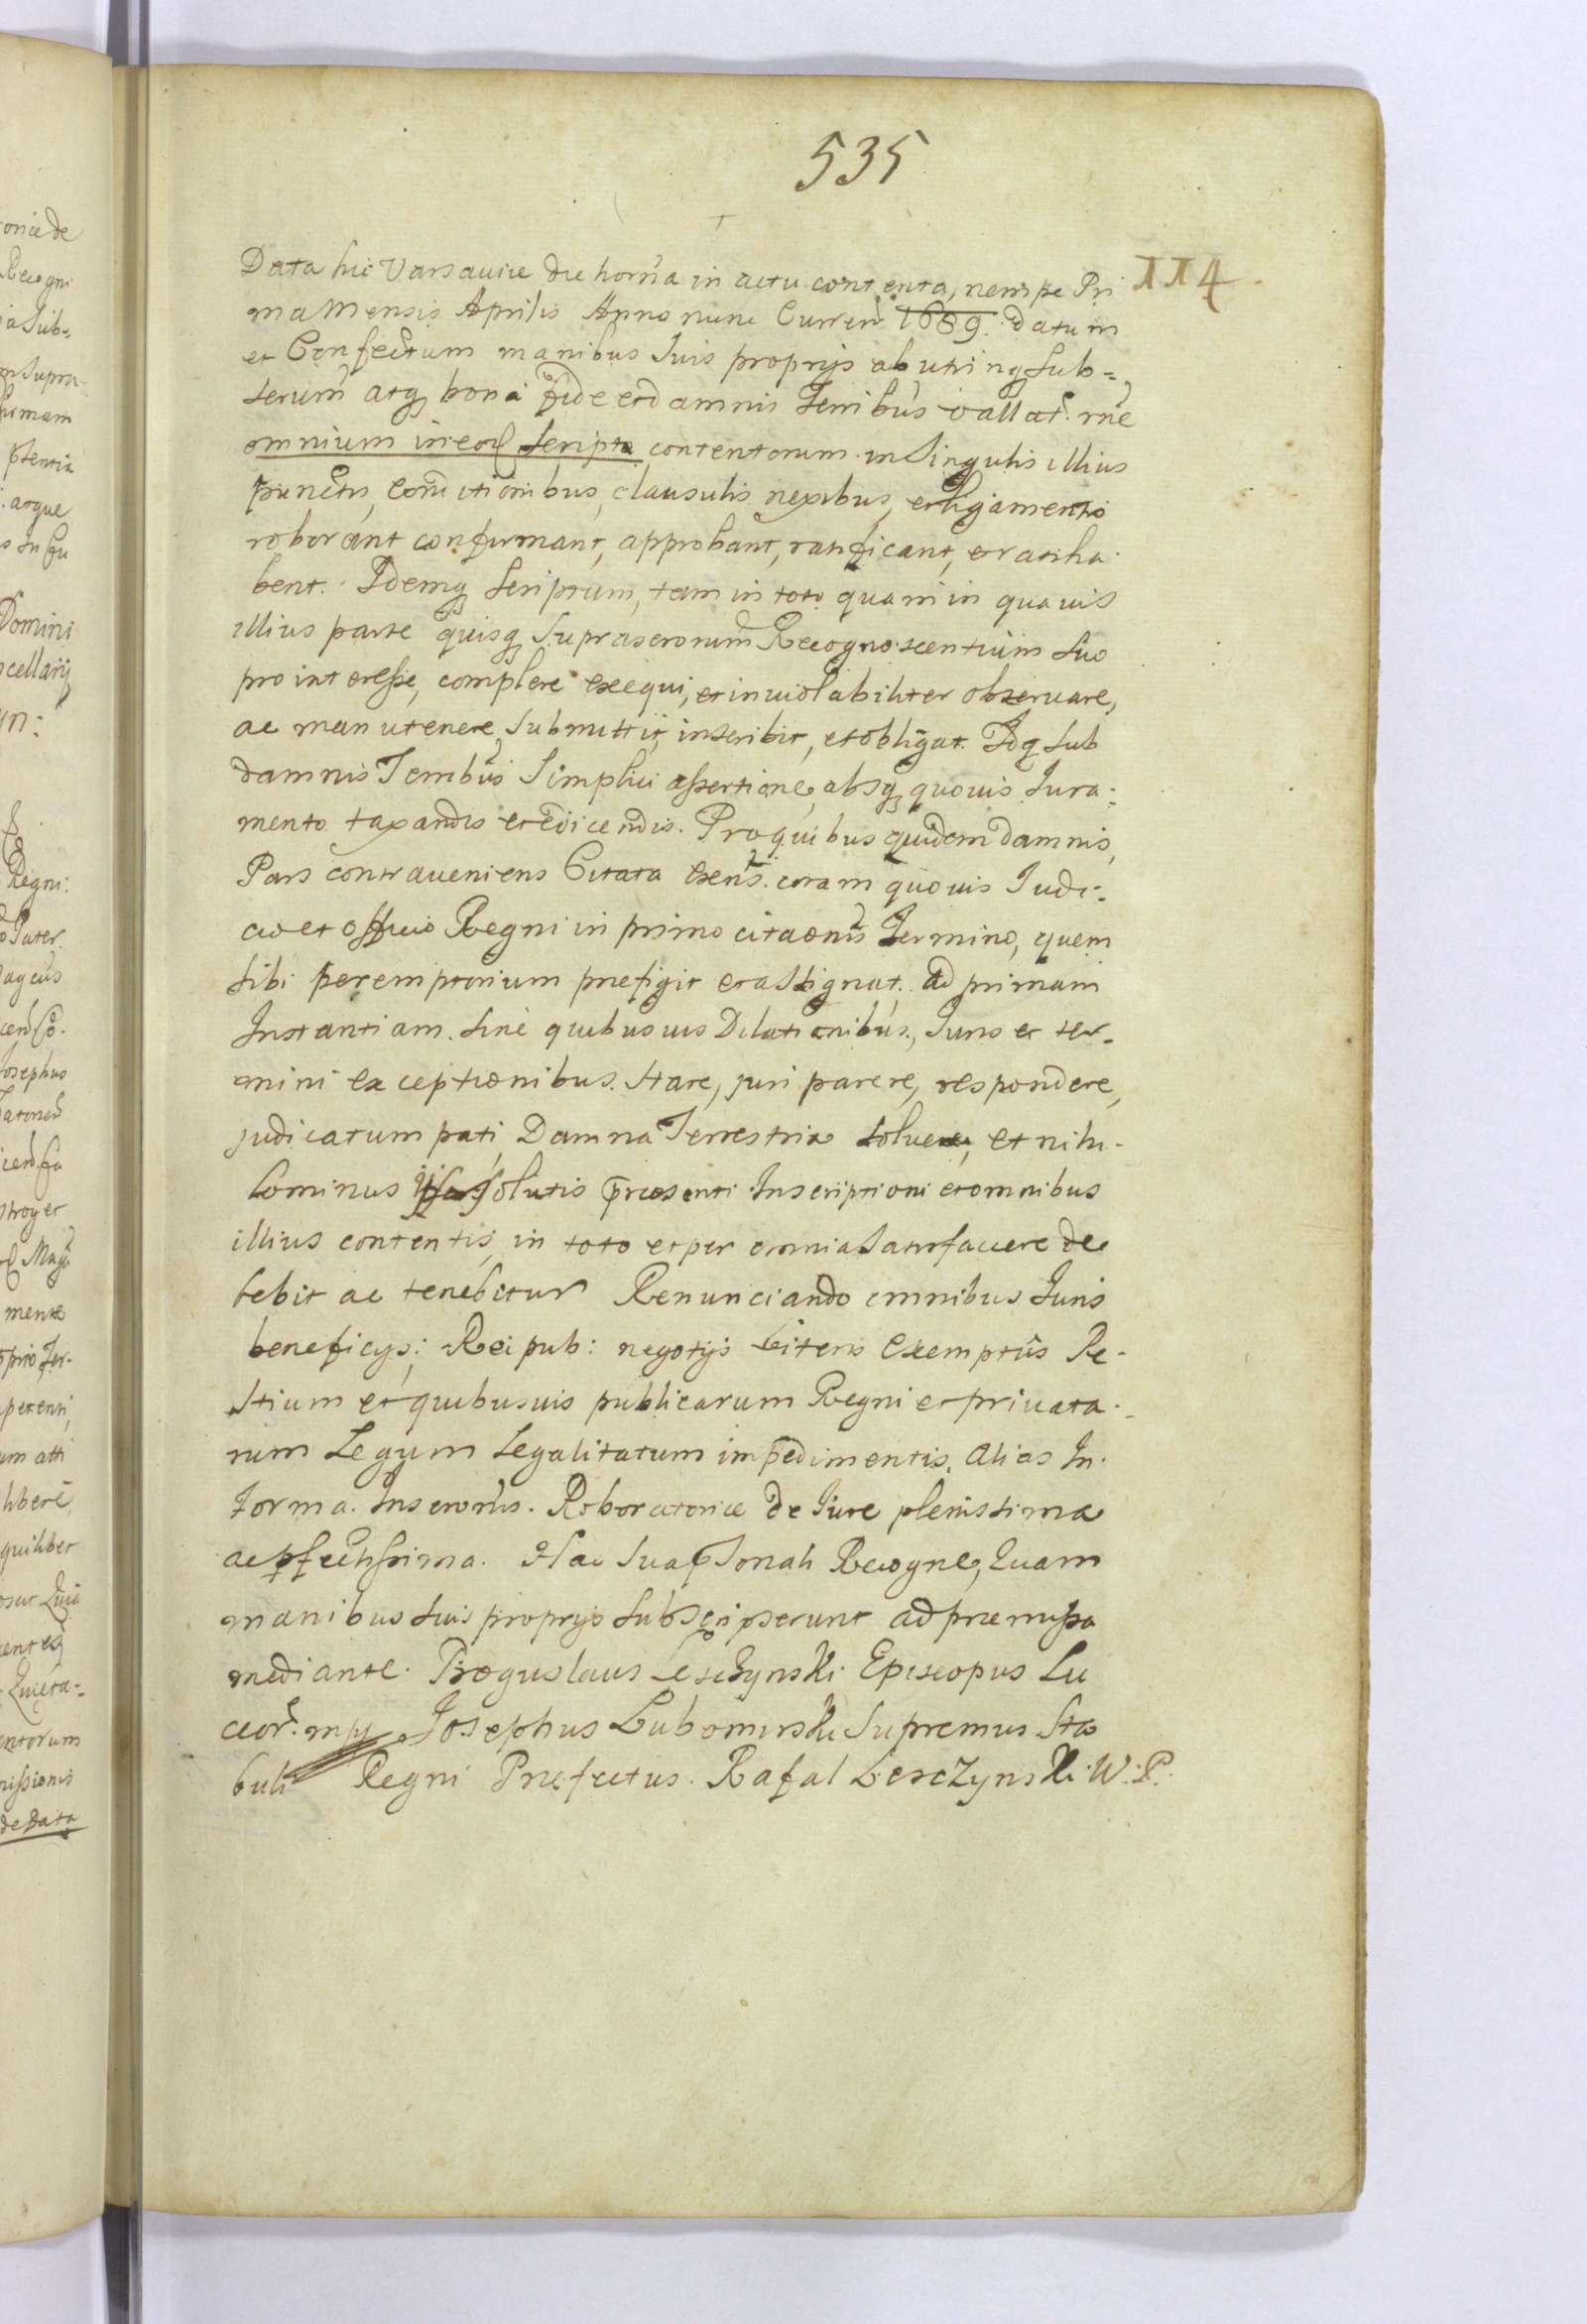 535
114
Data hic Varsaviæ die horna in actu contenta, nempe Pri
ma Mensis Aprilis Anno nunc Curren 1689. datum
et Confectum manibus suis proprijs ab utrinq sub=
scrium atq bona fide et damnis Terribus vallat. rne
omnium in eod scripto contentorum in Singulis illius
punctis, conditionibus, clausulis nexibus, et ligamentis
roborant confirmant, approbant, ratificant, et ratiha
bent. Idemq scriptum, tam in toto quam in quavis
illius parte quisq suprascrorum Recognoscentium suo
pro interesse, complere exequi, et inviolabiliter observare,
ac manutenere submittit, inscribit, et obligat. Idq sub
damnis Terribus simplici assertione, absq quovis Jura=
mento taxandis et edicendis. Pro quibus quidem damnis,
Pars contraveniens Citata exens. coram quovis Judi=
cio et officio Regni in primo citaonis Termino, quem
sibi peremptorium præfigit et assignat. ad primam
Instantiam. sine quibusvis Dilationibus, Juris et ter-
mini exceptionibus. stare, juri parere, respondere,
judicatum pati, Damna Terrestria solvere, et nihi-
lominus solutis præsenti Inscriptioni et omnibus
illius contentis, in toto et per omnia satisfacere de
bebit ac tenebitur Renunciando omnibus Juris
beneficijs; Rei pub: negotijs Literis Exemptis Pe-
stium et quibusvis publicarum Regni et privata-
rum Legum Legalitatum impedimentis. Alias In
forma Inscronis. Roboratoriæ de Jure plenissima
ac pfectissima. Hac sua psonali Recogne, Quam
manibus suis proprijs subscripserunt ad præmissa
mediante. Boguslaus Leschynski Episcopus Lu
ceor. mp Josephus Lubomirski Supremus Sta
buli Regni Præfectus. Rafal Leszczynski W. P.